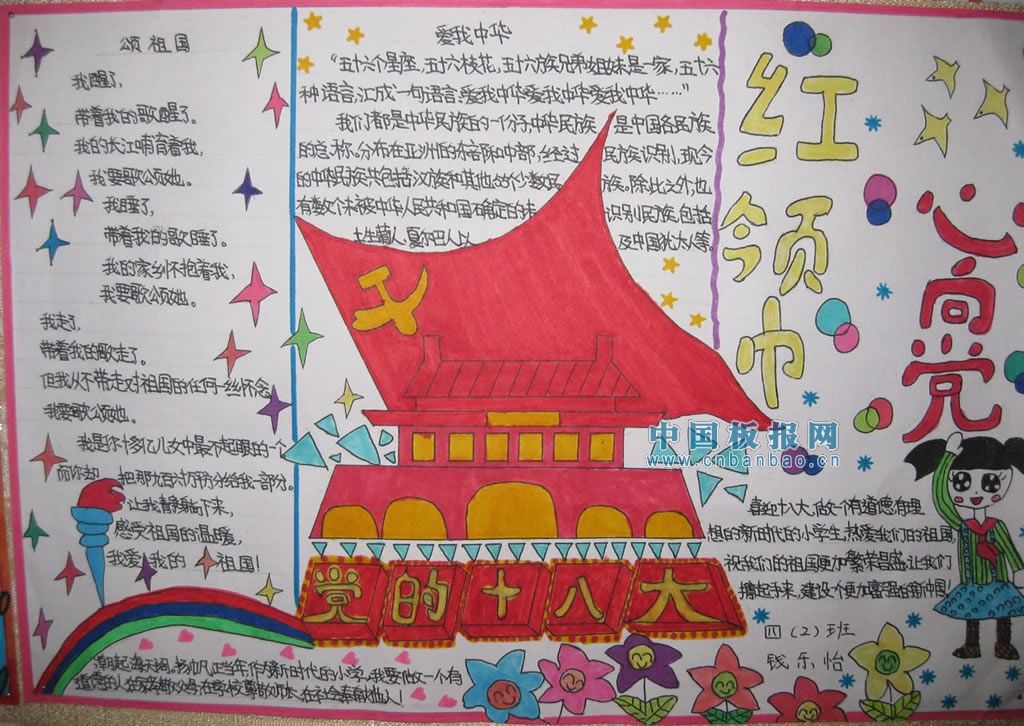 颂祖国
我醒了，
带着我的歌醒了。
我的长江哺育着我，
我要歌颂她。
我睡了，
带着我的歌睡了。
我的家乡怀抱着我，
我要歌颂她。
我走了，
带着我的歌走了。
但我从不带走对祖国的任何一丝怀念
我要歌颂她。
我是你十多亿儿女中最不起眼的一个
而你却 把那九百六十万分给我一部分。
让我静静
感受祖国的温暖，
我爱 我的 祖国！
爱我中华
“五十六个星座，五十六枝花，五十六族兄弟姐妹是一家，五十六
种语言，汇成一句语言：爱我中华爱我中华爱我中华……”
我们都是中华民族的一份子，中华民族 是中国各民族
的总称。分布在亚洲的东部和中部，经过 民族识别，现今
的中华民族共包括汉族和其他55个少数民 族。除此之外，也
有数个未被中华人民共和国确定的未 识别民族，包括
夏尔巴人以 及中国犹太人等。
红领巾
心向党
党的十八大
中国板报网
www.cnbanbao.cn
喜迎十八大，做一个有道德有理
想的新时代的小学生，热爱我们的祖国，
祝我们的祖国更加繁荣昌盛，让我们
携起手来，建设个更加富强的新中国！
四（2）班
钱乐怡
潮起海天阔，扬帆正当年，作新时代的小学，我要做一个有
道德的人，在家孝敬父母，在学校尊敬师长，在社会奉献他人！